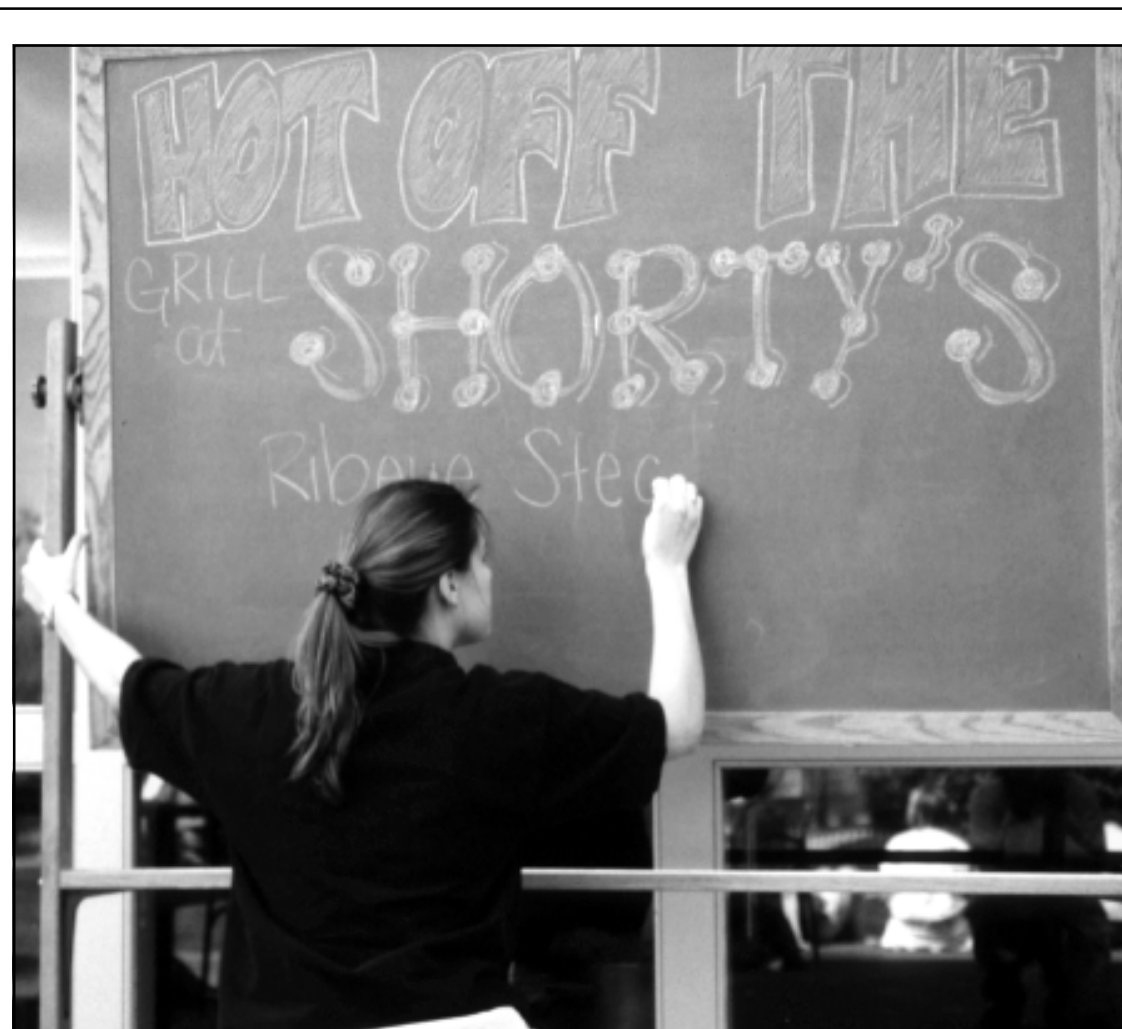 HOT OFF THE
GRILL at SHORTY'S
Ribeye Stea